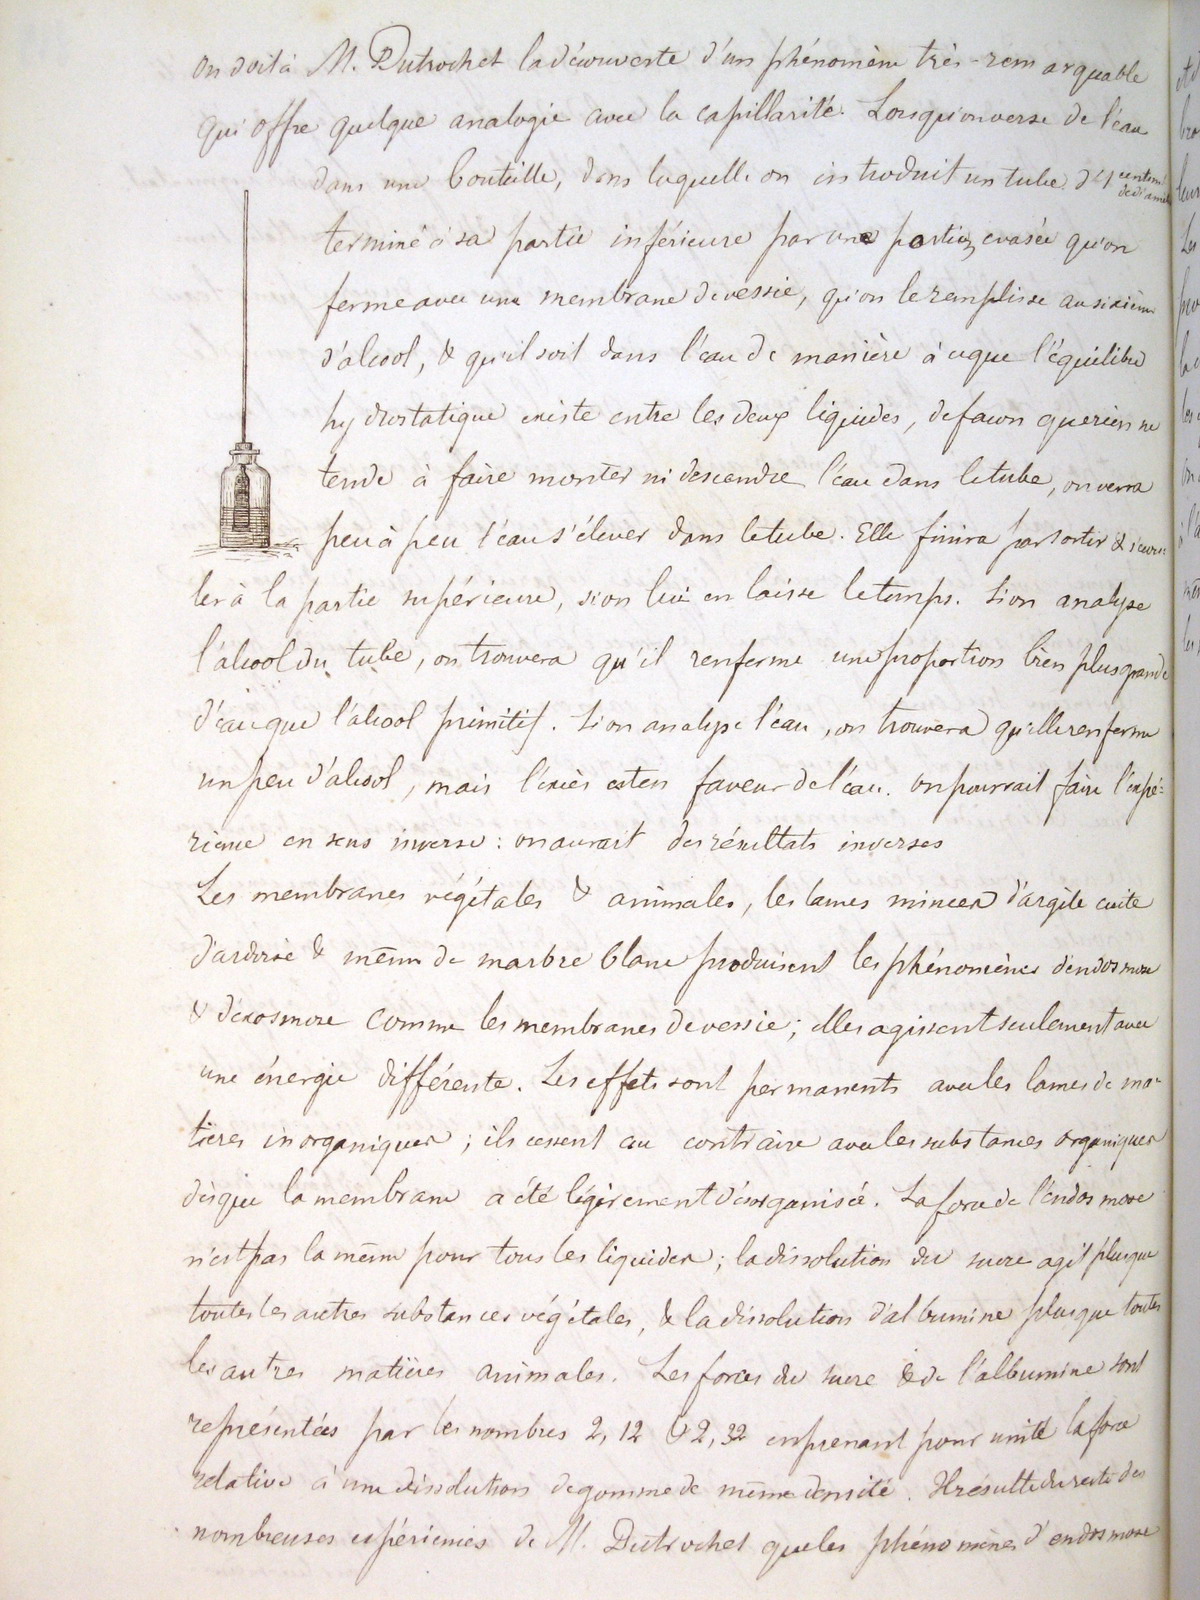 On doit à M. Dutrochet la découverte d'un phénomène très-remarquable
qui offre quelque analogie avec la capillarité. Lorsqu'on verse de l'eau
dans une bouteille, dans laquelle on introduit un tube d'1 centim. de diam.
terminé à sa partie inférieure par une partie evasée qu'on
ferme avec une membrane de vessie, qu'on le remplisse au sixième
d'alcool, & qu'il soit dans l'eau de manière à ce que l'équilibre
hydrostatique existe entre les deux liquides, de façon que rien ne
tende à faire monter ni descendre l'eau dans le tube, on verra
peu à peu l'eau s'élever dans le tube. Elle finira par sortir & s'écou
ler à la partie supérieure, si on lui en laisse le temps. Si on analyse
l'alcool du tube, on trouvera qu'il renferme une proportion bien plus grande
d'eau que l'alcool primitif. Si on analyse l'eau, on trouvera qu'elle renferme
un peu d'alcool, mais l'excès est en faveur de l'eau. On pourrait faire l'expé-
rience en sens inverse : on aurait des résultats inverses
Les membranes végétales & animales, les lames minces d'argile cuite
d'ardoise & même de marbre blanc produisent les phénomènes d'endosmose
& d'exosmose comme les membranes de vessie ; elles agissent seulement avec
une énergie différente. Les effets sont permanents avec les lames de ma-
tières inorganiques ; ils cessent au contraire avec les substances organiques
dès que la membrane a été légèrement désorganisée. La force de l'endosmose
n'est pas la même pour tous les liquides ; la dissolution du sucre agit plus que
toutes les autres substances végétales, & la dissolution d'albumine plus que toutes
les autres matières animales. Les forces du sucre & de l'albumine sont
représentées par les nombres 2,12 & 2,32 en prenant pour unité la force
relative à une dissolution de gomme de même densité. Il résulte du reste des
nombreuses expériences de M. Dutrochet que les phénomènes d'endosmose